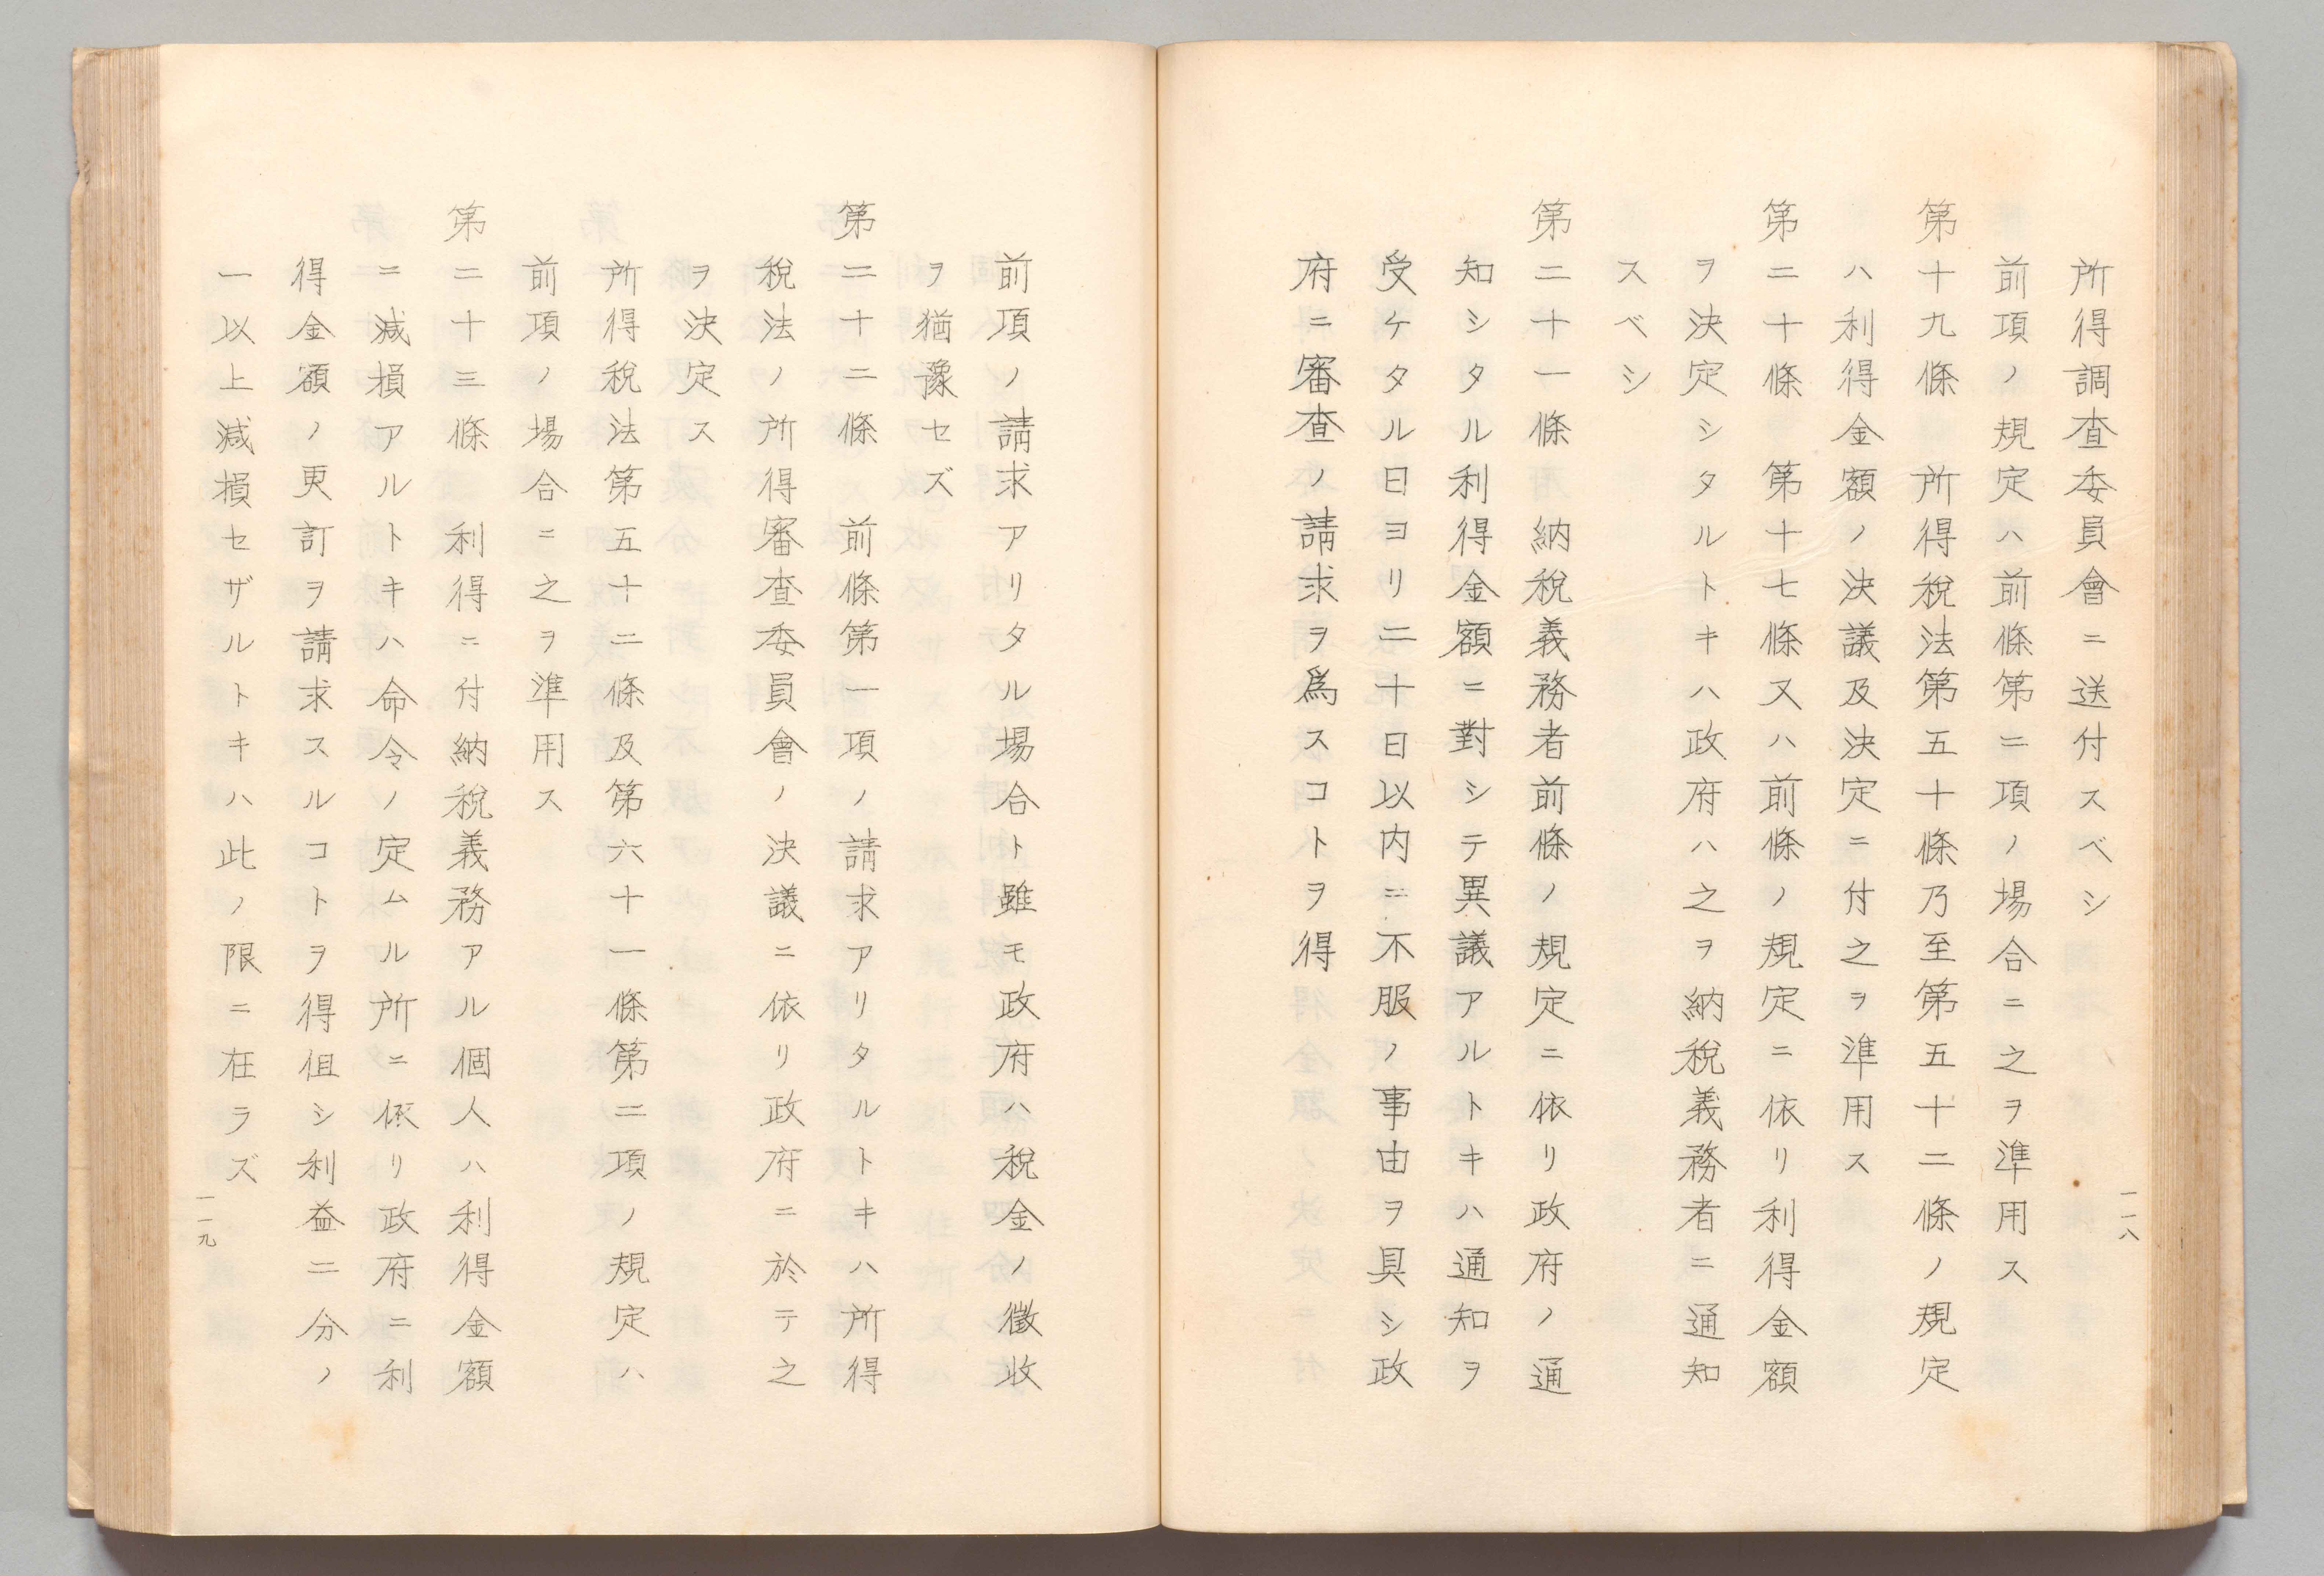 所得調査委員會ニ送付スベシ
前項ノ規定ハ前條第二項ノ場合ニ之ヲ準用ス
第十九條　所得稅法第五十條乃至第五十二條ノ規定
ハ利得金額ノ決議及決定ニ付之ヲ準用ス
第二十條　第十七條又ハ前條ノ規定ニ依リ利得金額
ヲ決定シタルトキハ政府ハ之ヲ納稅義務者ニ通知
スベシ
第二十一條　納稅義務者前條ノ規定ニ依リ政府ノ通
知シタル利得金額ニ對シテ異議アルトキハ通知ヲ
受ケタル日ヨリ二十日以内ニ不服ノ事由ヲ具シ政
府ニ審査ノ請求ヲ爲スコトヲ得
一一八
前項ノ請求アリタル場合ト雖モ政府ハ稅金ノ徵收
ヲ猶豫セズ
第二十二條　前條第一項ノ請求アリタルトキハ所得
稅法ノ所得審査委員會ノ決議ニ依リ政府ニ於テ之
ヲ決定ス
所得稅法第五十二條及第六十一條第二項ノ規定ハ
前項ノ場合ニ之ヲ準用ス
第二十三條　利得ニ付納稅義務アル個人ハ利得金額
ニ減損アルトキハ命令ノ定ムル所ニ依リ政府ニ利
得金額ノ更訂ヲ請求スルコトヲ得但シ利益二分ノ
一以上減損セザルトキハ此ノ限ニ在ラズ
一一九